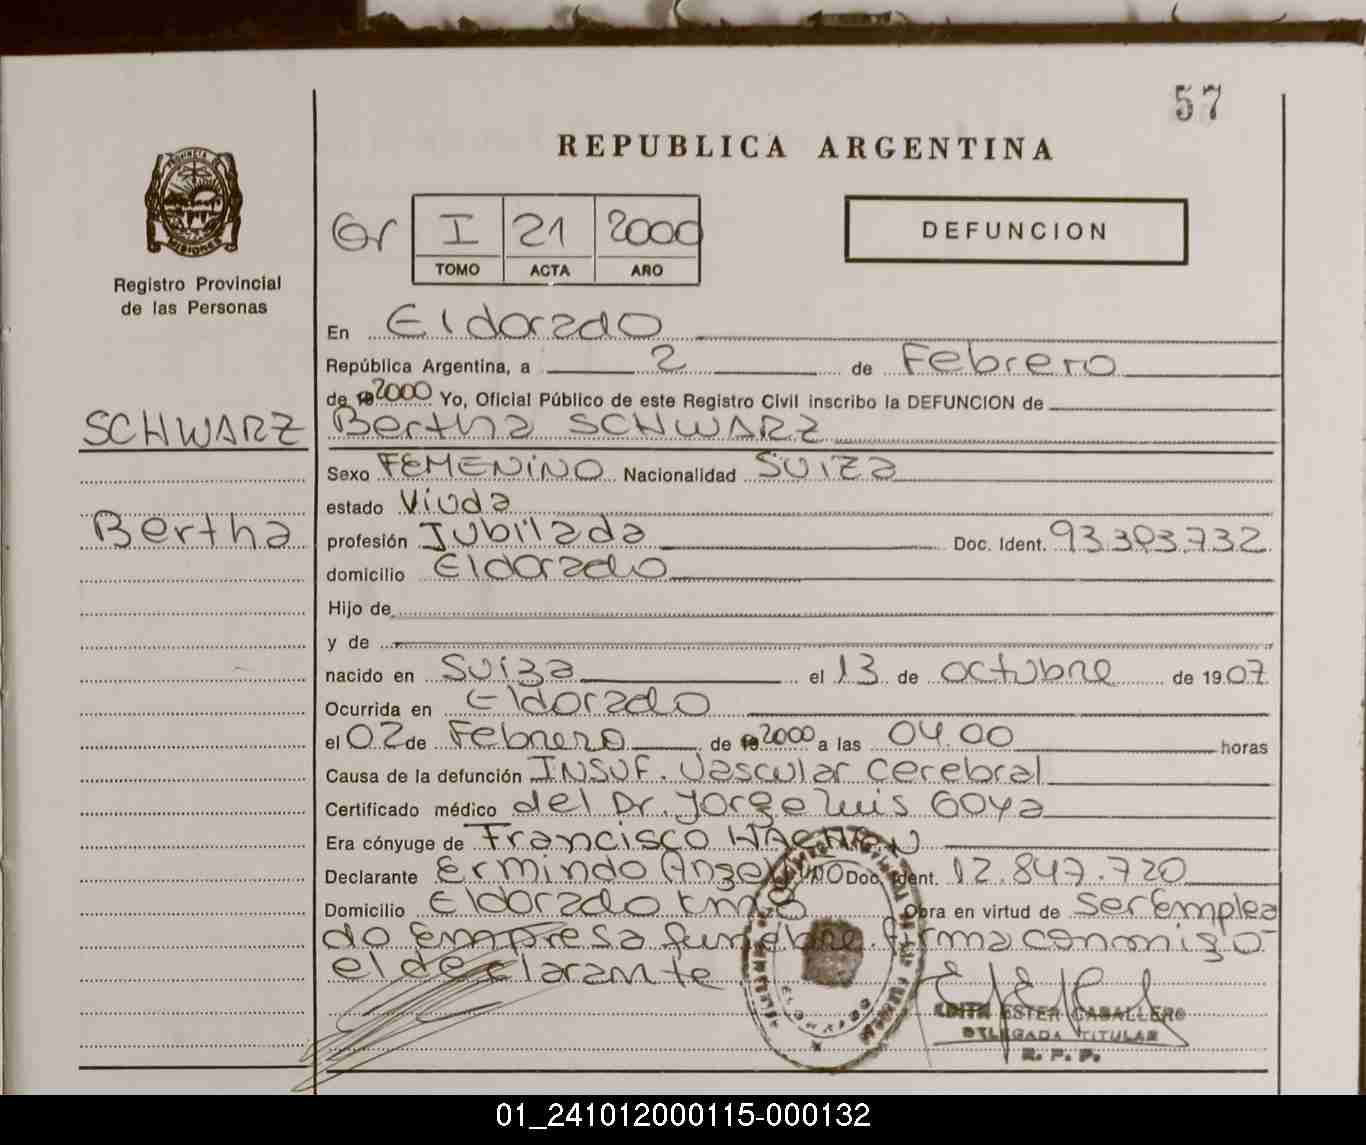 57
REPUBLICA ARGENTINA
PROVINCIA DE
MISIONES
Registro Provincial
de las Personas
Gr I 21 2000
TOMO ACTA AÑO
DEFUNCION
En Eldorado
República Argentina, a 2 de Febrero
de 2000 Yo, Oficial Público de este Registro Civil inscribo la DEFUNCION de
SCHWARZ
Bertha SCHWARZ
Sexo FEMENINO Nacionalidad SUIZA
estado Viuda
Bertha
profesión Jubilada Doc. Ident. 93.393.732
domicilio Eldorado
Hijo de
y de
nacido en Suiza el 13 de octubre de 1907
Ocurrida en Eldorado
el 02 de Febrero de 2000 a las 04.00 horas
Causa de la defunción INSUF. Vascular cerebral
Certificado médico del Dr. Jorge Luis Goya
Era cónyuge de Francisco
Declarante Ermindo Doc. Ident. 12.847.720
Domicilio Eldorado Obra en virtud de Ser Emplea
do Empresa funebre. firma conmigo
el declarante
ELDORADO
EDITH ESTER CABALLERO
DELEGADA TITULAR
R. P. P.
01_241012000115-000132